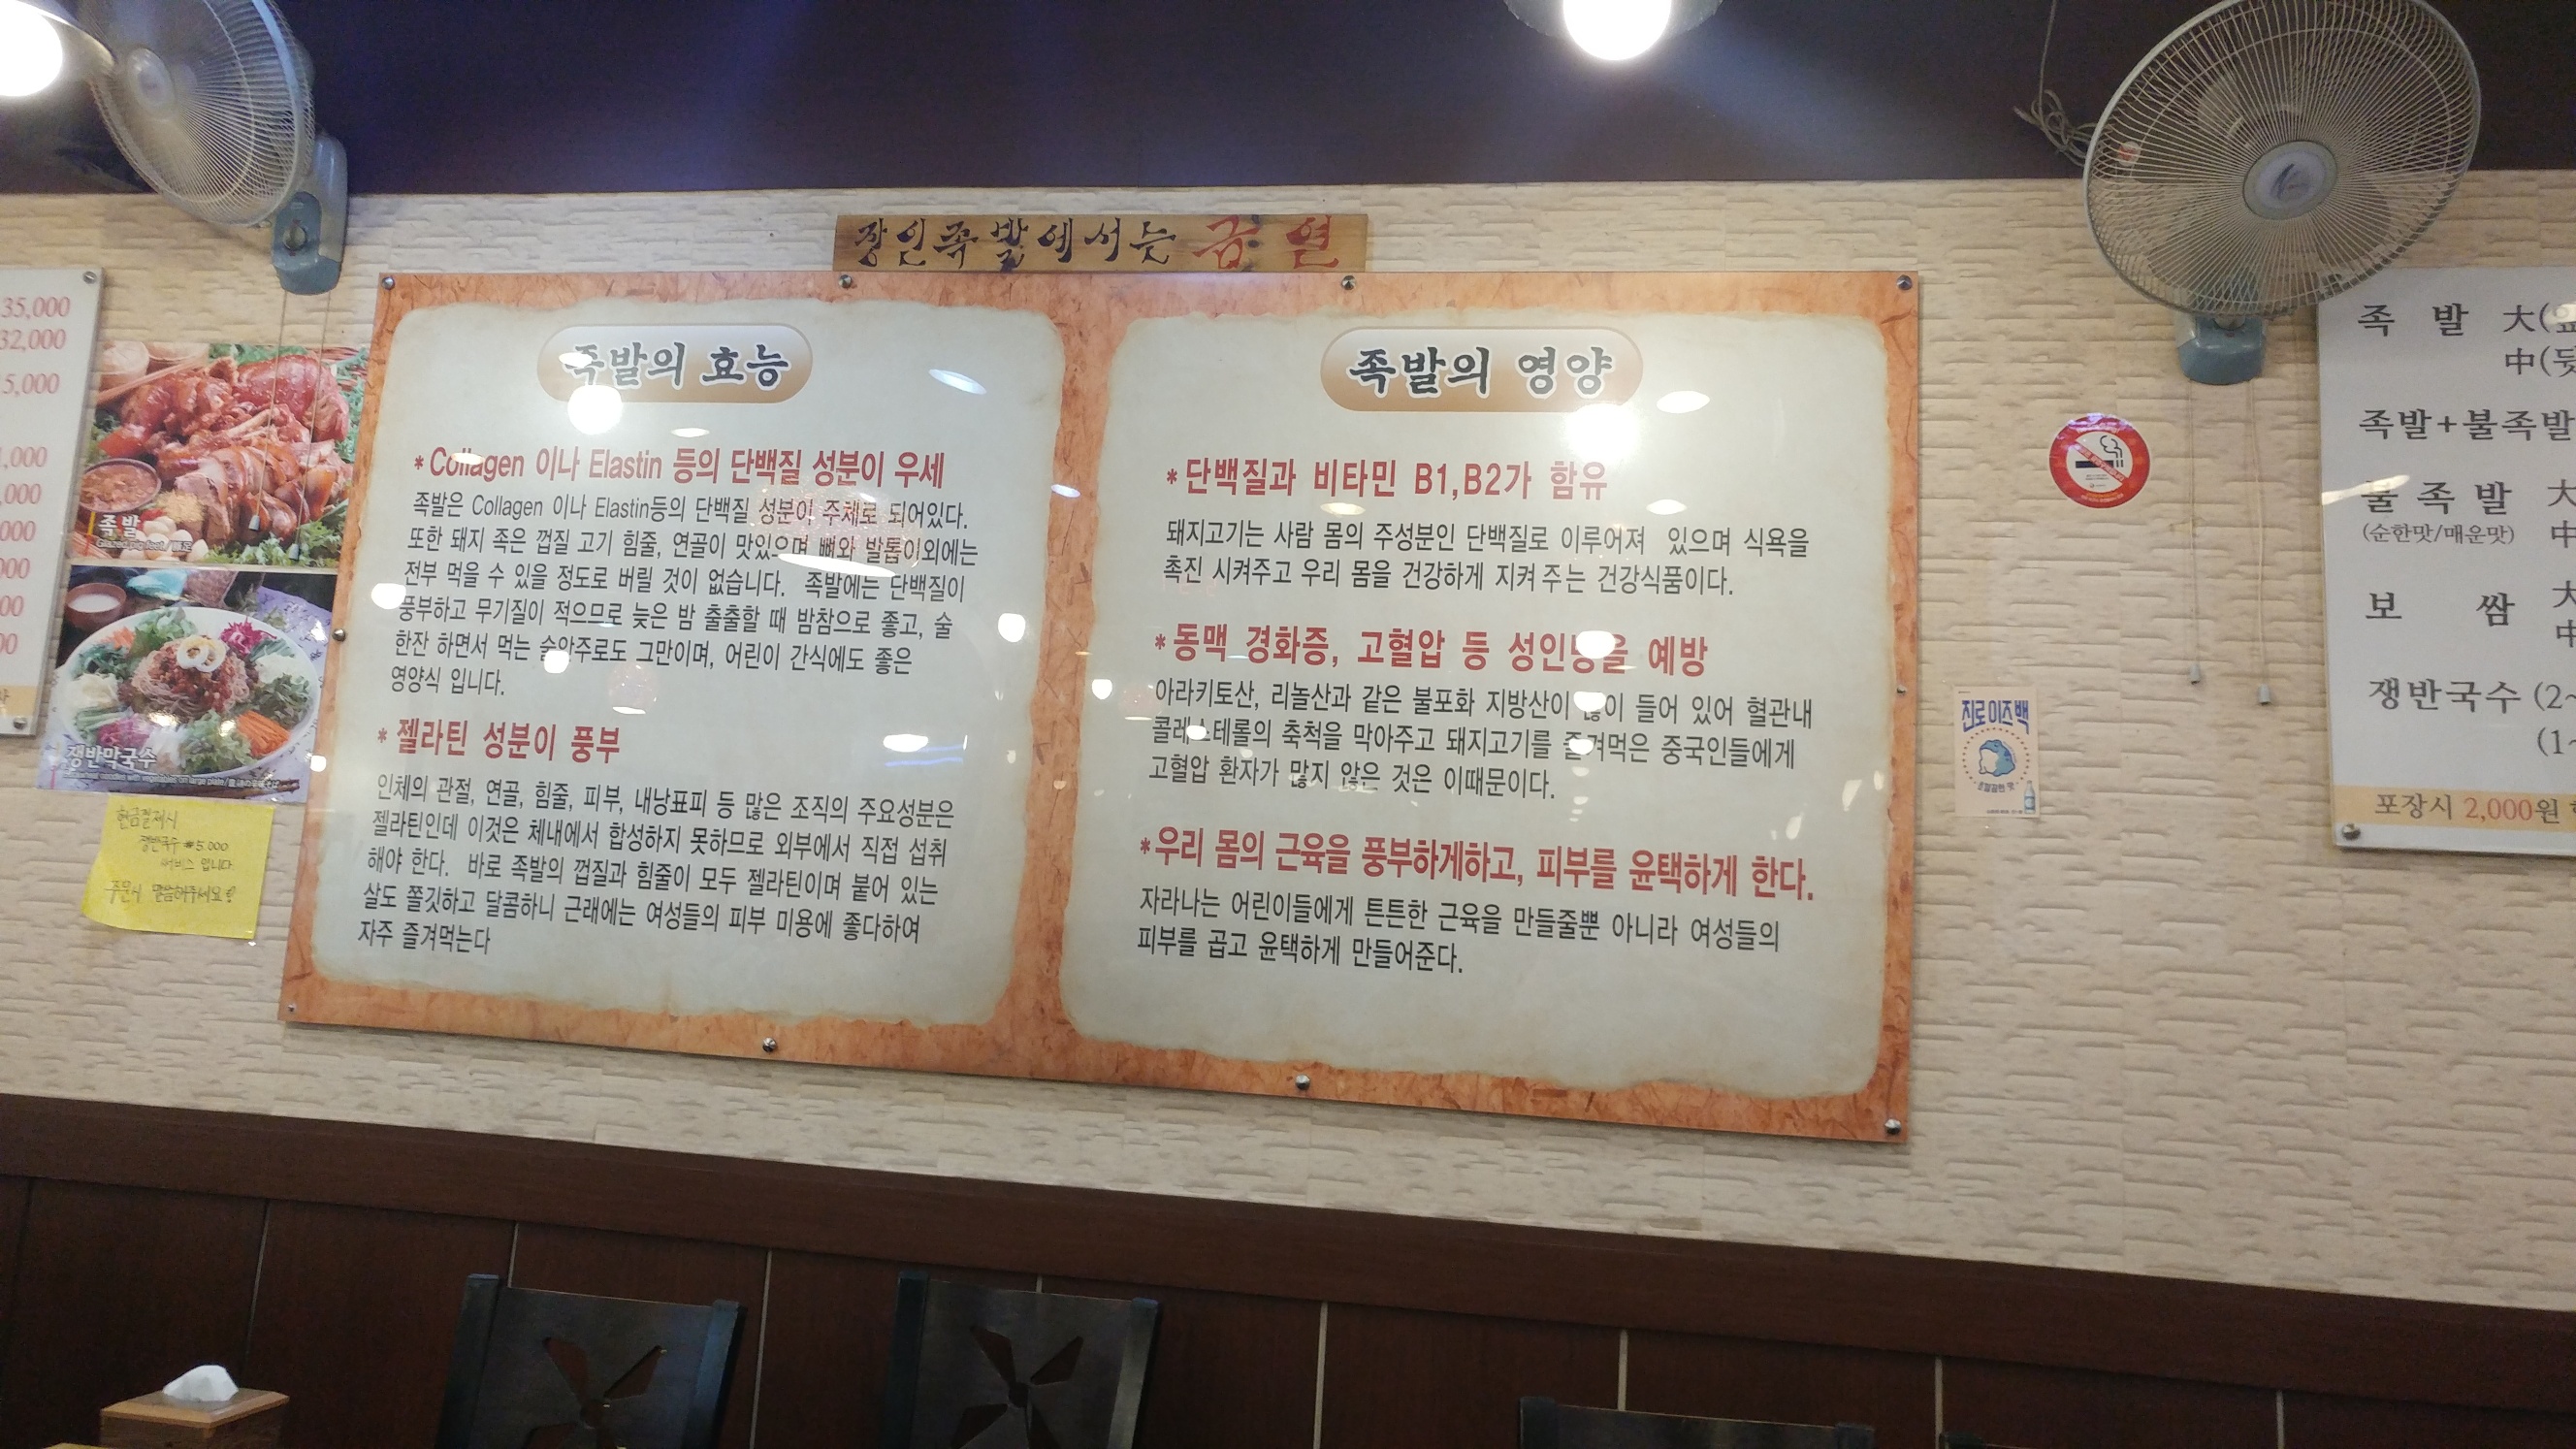 장인족발에서는 금연
35,000
32,000
5,000
,000
,000
000
000
00
0
족발
쟁반막국수
현금결제시
쟁반국수 ₩5,000
써비스 입니다.
주문시 말씀해주세요
족발의 효능
*Collagen 이나 Elastin 등의 단백질 성분이 우세
족발은 Collagen 이나 Elastin등의 단백질 성분이 주체로 되어있다.
또한 돼지 족은 껍질 고기 힘줄, 연골이 맛있으며 뼈와 발톱이외에는
전부 먹을 수 있을 정도로 버릴 것이 없습니다. 족발에는 단백질이
풍부하고 무기질이 적으므로 늦은 밤 출출할 때 밤참으로 좋고, 술
한잔 하면서 먹는 술안주로도 그만이며, 어린이 간식에도 좋은
영양식 입니다.
* 젤라틴 성분이 풍부
인체의 관절, 연골, 힘줄, 피부, 내낭표피 등 많은 조직의 주요성분은
젤라틴인데 이것은 체내에서 합성하지 못하므로 외부에서 직접 섭취
해야 한다. 바로 족발의 껍질과 힘줄이 모두 젤라틴이며 붙어 있는
살도 쫄깃하고 달콤하니 근래에는 여성들의 피부 미용에 좋다하여
자주 즐겨먹는다
족발의 영양
*단백질과 비타민 B1,B2가 함유
돼지고기는 사람 몸의 주성분인 단백질로 이루어져 있으며 식욕을
촉진 시켜주고 우리 몸을 건강하게 지켜 주는 건강식품이다.
*동맥 경화증, 고혈압 등 성인병을 예방
아라키토산, 리놀산과 같은 불포화 지방산이 많이 들어 있어 혈관내
콜레스테롤의 축척을 막아주고 돼지고기를 즐겨먹은 중국인들에게
고혈압 환자가 많지 않은 것은 이때문이다.
*우리 몸의 근육을 풍부하게하고, 피부를 윤택하게 한다.
자라나는 어린이들에게 튼튼한 근육을 만들줄뿐 아니라 여성들의
피부를 곱고 윤택하게 만들어준다.
진로이즈백
족 발 大(앞
中(뒷
족발+불족발
불 족 발 大
(순한맛/매운맛) 中
보 쌈 大
中
쟁반국수 (2~
(1~
포장시 2,000원